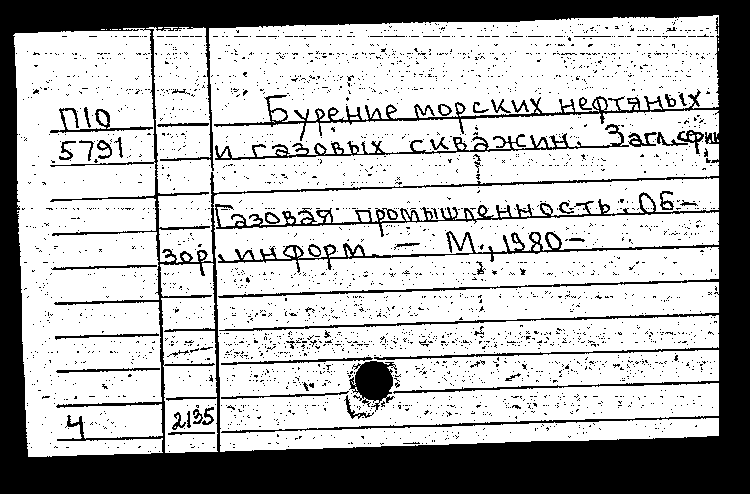 П10
5791
Бурение морских нефтяных
и газовых скважин. Загл. серии
Газовая промышленность: Об-
зор. информ. — М., 1980—
4
2135